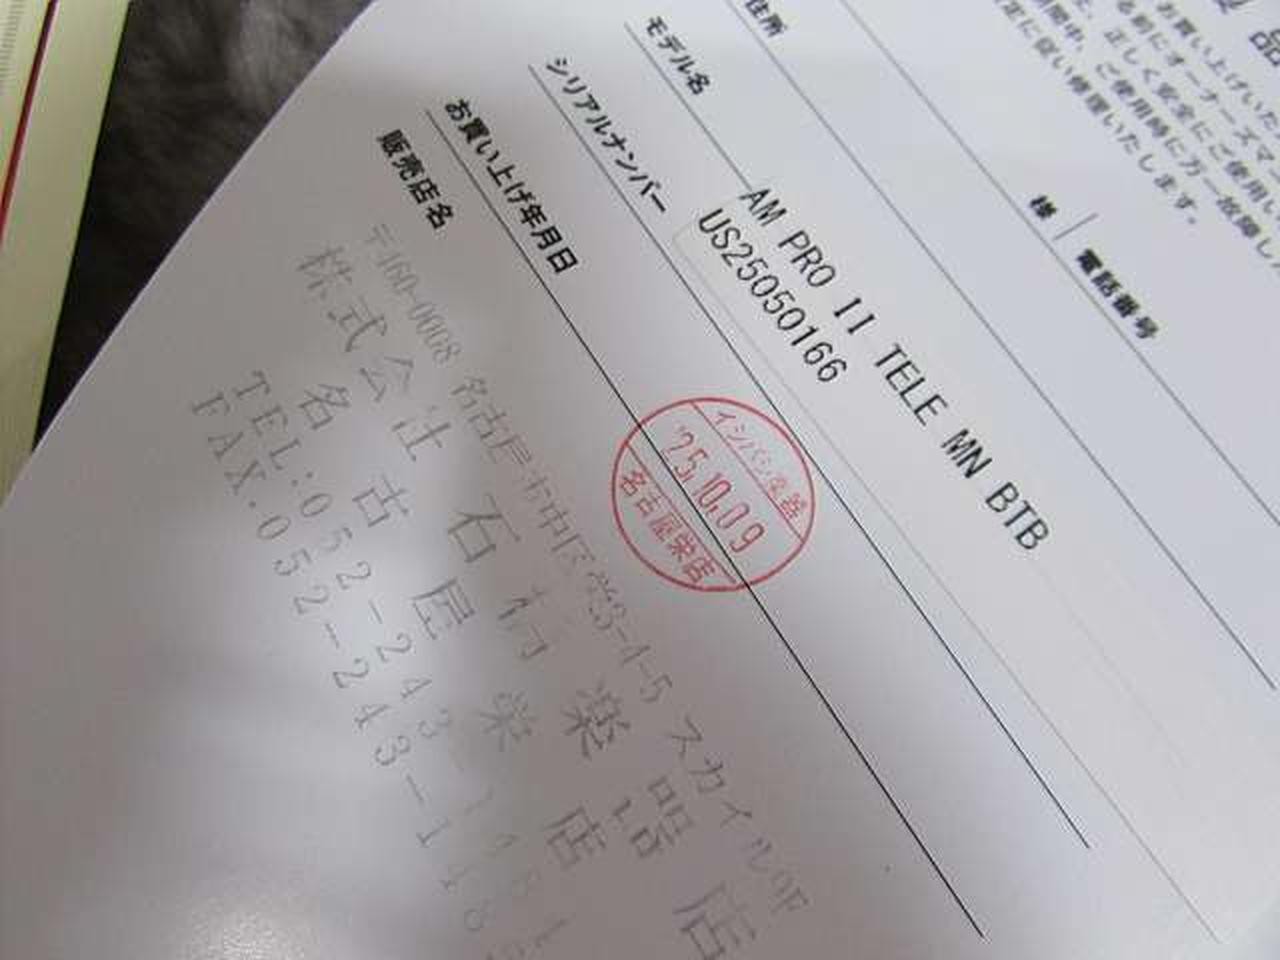 品
お買い上げいた
る前にオーナーズマ
正しく安全にご使用い
期間中、ご使用時に万一故障し
正に従い修理いたします。
住所
様
電話番号
モデル名
AM PRO II TELE MN BTB
シリアルナンバー
US25050166
お買い上げ年月日
イシバシ楽器
'25.10.09
名古屋栄店
販売店名
〒460-0008 名古屋市中区栄3-4-5 スカイル9F
株式会社 石橋楽器店
名古屋栄店
TEL:052-243-1
FAX.052-243-1